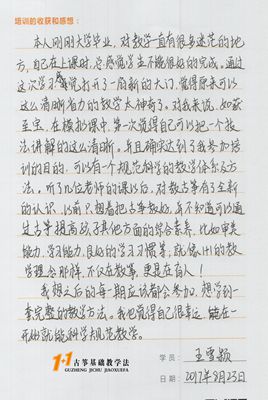 培训的收获和感想：
本人刚刚大学毕业，对教学一直有很多迷茫的地
方，自己在上课时，总感觉学生不能很好的完成。通过
这次学习感觉打开了一扇新的大门，觉得原来可以
这么清晰省力的教学太神奇了。对我来说，如获
至宝，在模拟课中，第一次觉得自己可以把一个技
法讲解的这么清晰。并且确实达到了我参加培
训的目的，可以有一个规范科学的教学体系及方
法。听了几位老师的课以后，对教古筝有了全新
的认识，以前只想着把古筝教好，并不知道可以通
过古筝提高孩子其他方面的综合素养，比如审美
能力，学习能力，良好的学习习惯等，就像1+1的教
学理念那样，不仅在教筝，更是在育人！
我想之后的每一期应该都会参加，想学到一
套完整的教学方法。我也觉得自己很幸运，能在一
开始就能科学规范教学。
1+1古筝基础教学法
GUZHENG JICHU JIAOXUEFA
学员：王雪颖
日期：2017年8月23日